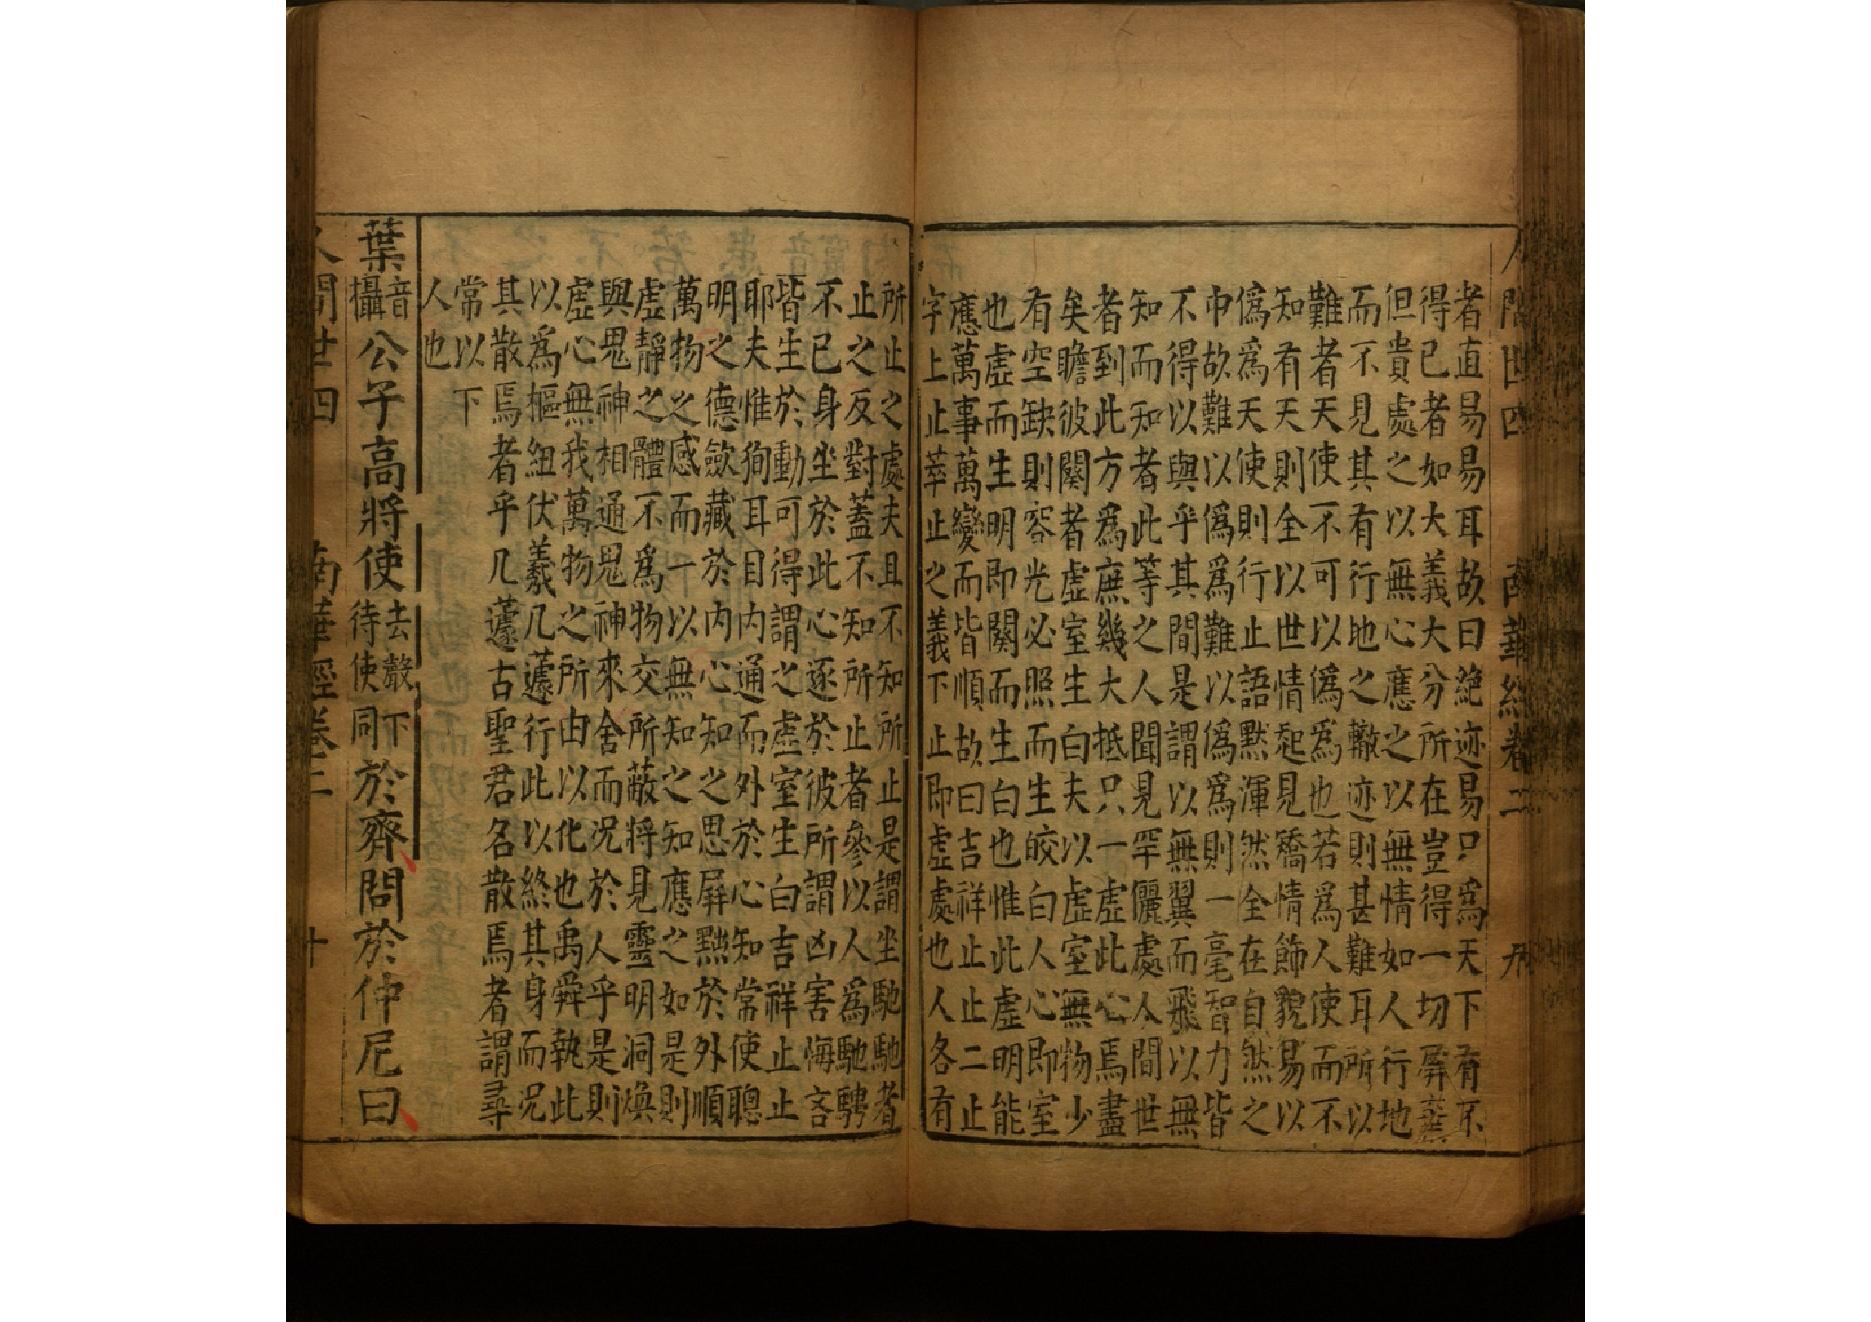 者直易易耳故曰絶迹易只爲天下有不
得已者如大義大分所在豈得一切屏棄
但貴處之以無心應之以無情如人行地
而不見其有行地之轍迹則甚難耳所以
難者天使不可以僞爲也若爲人使而不
知有天則全以世情起見矯情飾貌易以
僞爲天使則行止語默渾然全在自然之
中故難以僞爲難以僞爲則一毫智力皆
不得以與乎其間是謂以無翼而飛以無
知而知知者此等之人聞見罕儷處人間世
者到此方爲庶幾大抵只一虛此心焉盡
矣瞻彼闋者虛室生白夫以虛室無物少
有空缺則容光必照而生皎白人心即室
也虛而生明即闋而生白也惟此虛明能
應萬事萬變而皆順故曰吉祥止止二止
字上止萃止之義下止即虛處也人各有
人間世四 南華經卷二 九
所止之處夫且不知所止是謂坐馳馳者
止之反對蓋不知所止者參以人爲馳騁
不已身坐於此心逐於彼所謂凶害悔吝
皆生於動可得謂之虛室生白吉祥止止
耶夫惟狥耳目内通而外於心知常使聰
明之德歛藏於内心知之思屏黜於外順
萬物之感而一下以無知之知應之如是則
虛靜之體不爲物交所蔽將見靈明洞煥
與鬼神相通鬼神來舍而況於人乎是則
虛心無我萬物之所由以化也禹舜執此
以爲樞紐伏羲几蘧行此以終其身而況
其散焉者乎几蘧古聖君名散焉者謂尋
常以下
人也
葉音攝公子高將使去聲下待使同於齊問於仲尼曰
人間世四 南華經卷二 十